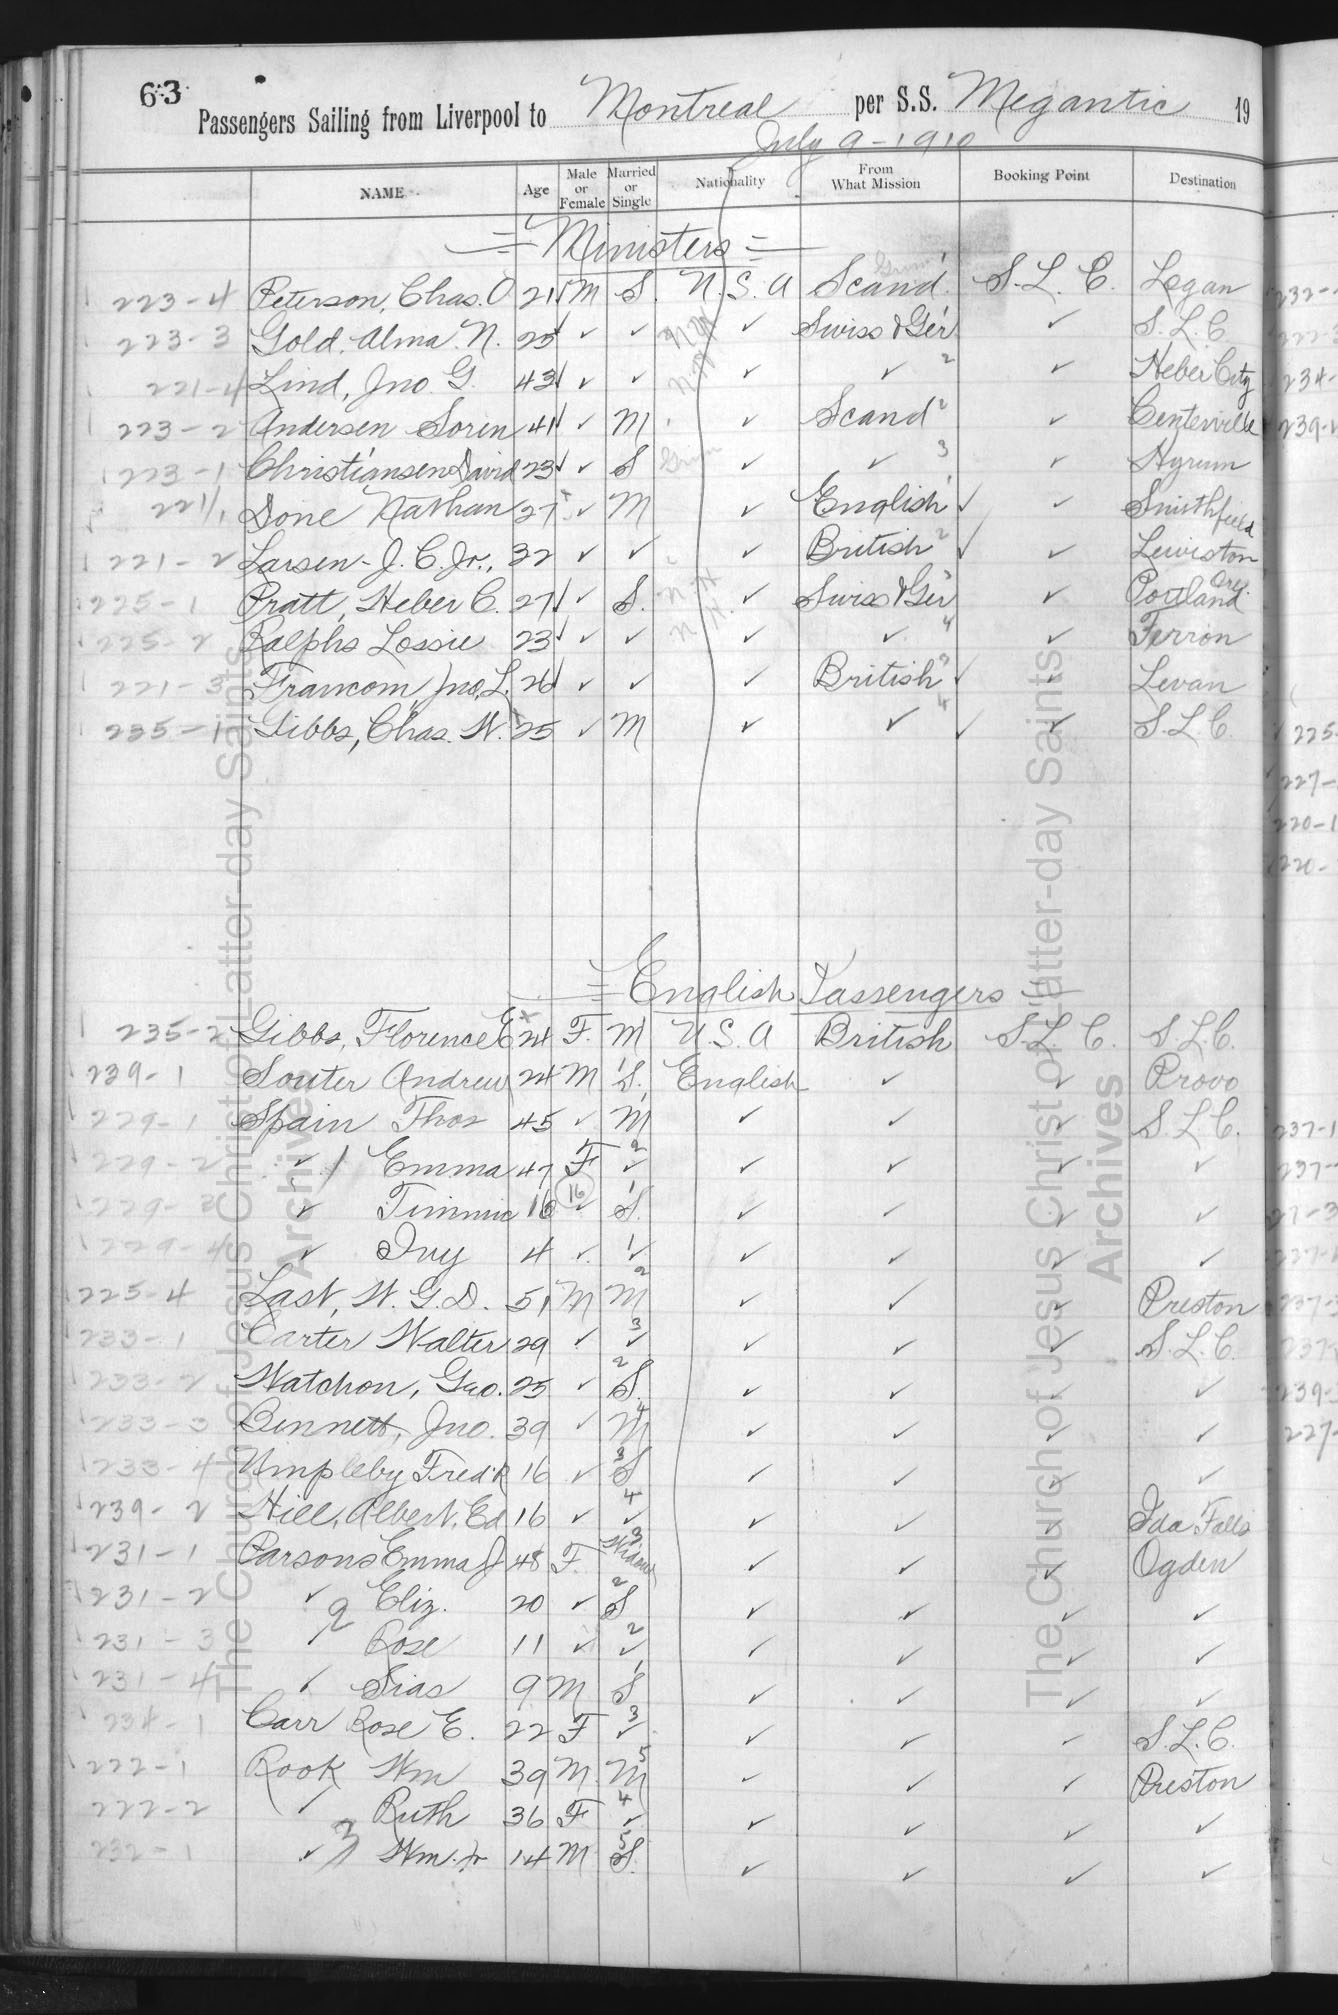 63
Passengers Sailing from Liverpool to Montreal per S.S. Megantic 19
July 9 - 1910
NAME Age Male or Female Married or Single Nationality From What Mission Booking Point Destination
= Ministers =
223-4 Peterson, Chas. O 21 M S. U.S.A Scand. S.L.C. Logan
223-3 Gold, Alma N. 25 ✓ ✓ ✓ Swiss & Ger ✓ S.L.C.
221-4 Lind, Jno G. 43 ✓ ✓ ✓ ✓ 2 ✓ Heber City
223-2 Andersen Soren 41 ✓ M ✓ Scand 2 ✓ Centerville
223-1 Christiansen David 23 ✓ S ✓ ✓ 3 ✓ Hyrum
221/1 Done Nathan 27 ✓ M ✓ English ✓ ✓ Smithfield
221-2 Larsen J.C. Jr., 32 ✓ ✓ ✓ British 2 ✓ ✓ Lewiston
225-1 Pratt, Heber C. 27 ✓ S. ✓ Swiss & Ger ✓ Portland Ore.
225-2 Ralphs Lossie 23 ✓ ✓ ✓ ✓ 4 ✓ Ferron
221-3 Francom, Jno. L. 26 ✓ ✓ ✓ British 3 ✓ ✓ Levan
235-1 Gibbs, Chas. W. 25 ✓ M ✓ ✓ 4 ✓ ✓ S.L.C.
= English Passengers =
235-2 Gibbs, Florence E 24 F. M U.S.A British S.L.C. S.L.C.
239-1 Souter Andrew 24 M 1 S. English ✓ ✓ Provo
229-1 Spain Thos 45 ✓ M ✓ ✓ ✓ S.L.C.
229-2 ✓ Emma 47 F 2 ✓ ✓ ✓ ✓ ✓
229-3 ✓ Timmie 16 16 ✓ 1 S. ✓ ✓ ✓ ✓
229-4 ✓ Ivy 4 ✓ 1 ✓ ✓ ✓ ✓ ✓
225-4 Last, W.G.D. 51 M 2 M ✓ ✓ ✓ Preston
233-1 Carter Walter 29 ✓ 3 ✓ ✓ ✓ ✓ S.L.C.
233-2 Watchon, Geo. 25 ✓ 2 S. ✓ ✓ ✓ ✓
233-3 Bennett, Jno. 39 ✓ 4 M ✓ ✓ ✓ ✓
233-4 Umpleby Fred'k 16 ✓ 3 S ✓ ✓ ✓ ✓
239-2 Hill, Albert, Ed 16 ✓ 4 ✓ ✓ ✓ ✓ Ida Falls
231-1 Parsons Emma J 48 F. 3 Widow ✓ ✓ ✓ Ogden
231-2 ✓ 2 Eliz. 20 ✓ 2 S ✓ ✓ ✓ ✓
231-3 Rose 11 ✓ 2 ✓ ✓ ✓ ✓ ✓
231-4 ✓ Sias 9 M 1 S ✓ ✓ ✓ ✓
234-1 Carr Rose E. 22 F 3 ✓ ✓ ✓ ✓ S.L.C.
222-1 Rook Wm 39 M 5 M ✓ ✓ ✓ Preston
222-2 ✓ Ruth 36 F 4 ✓ ✓ ✓ ✓ ✓
232-1 ✓ 3 Wm. Jr 14 M 5 S. ✓ ✓ ✓ ✓
The Church of Jesus Christ of Latter-day Saints
Archives
The Church of Jesus Christ of Latter-day Saints
Archives